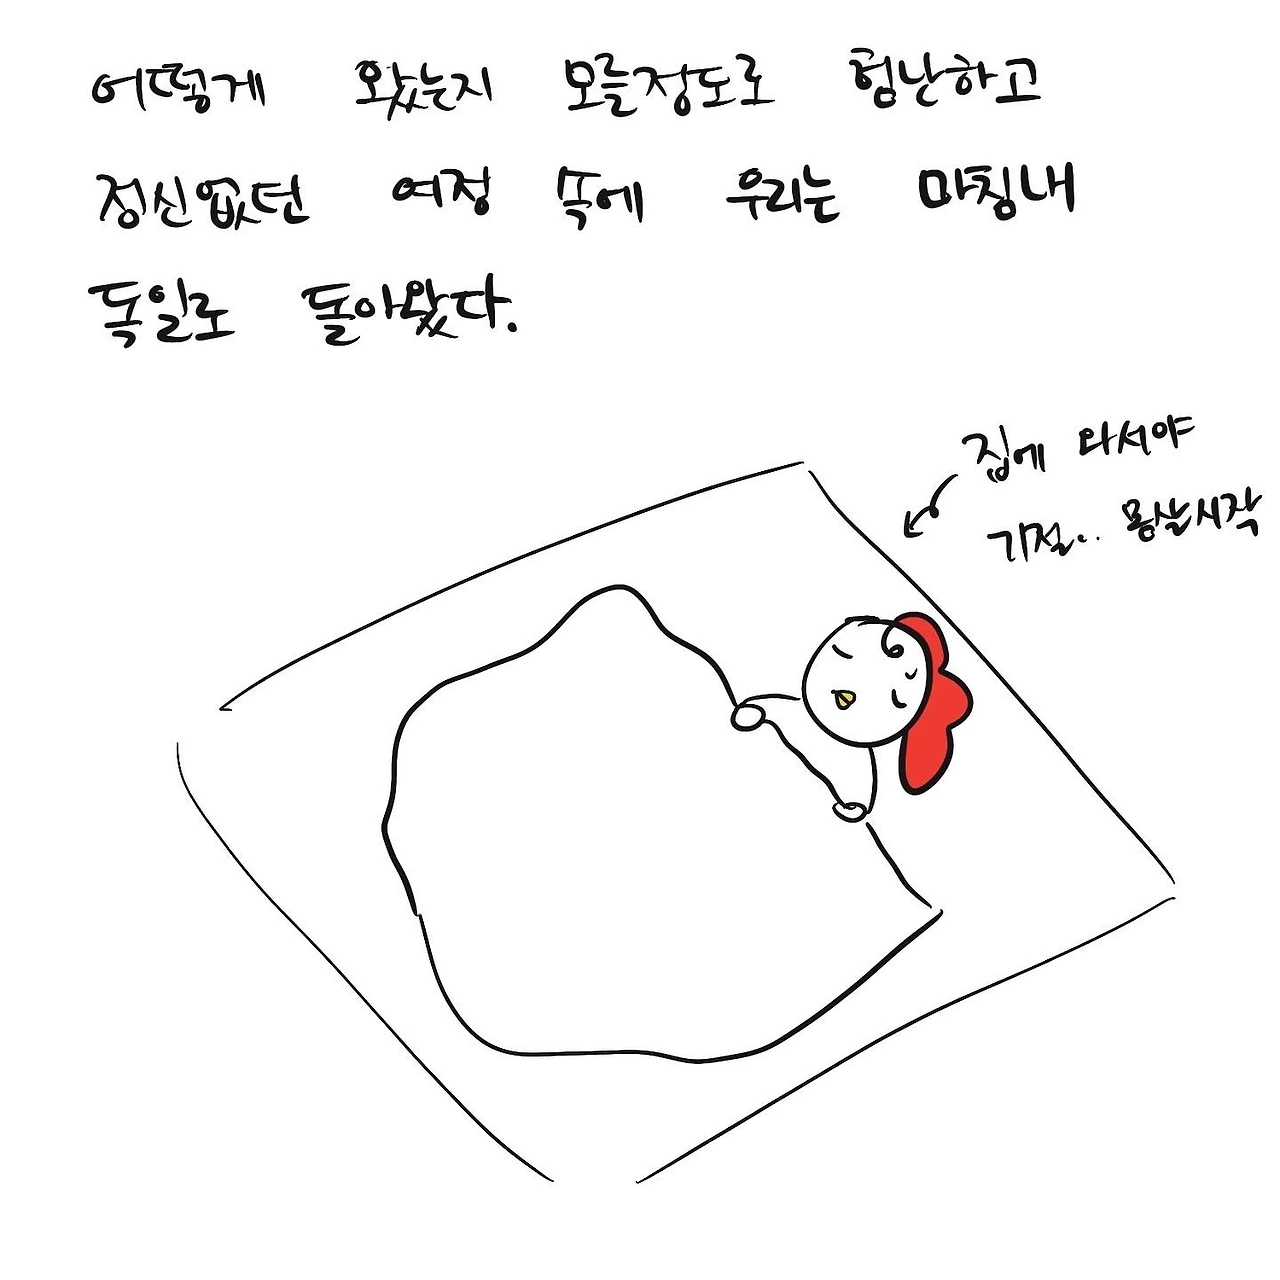 어떻게 왔는지 모를정도로 험난하고
정신없던 여정 속에 우리는 마침내
독일로 돌아왔다.
집에 와서야
기절.. 몸살시작